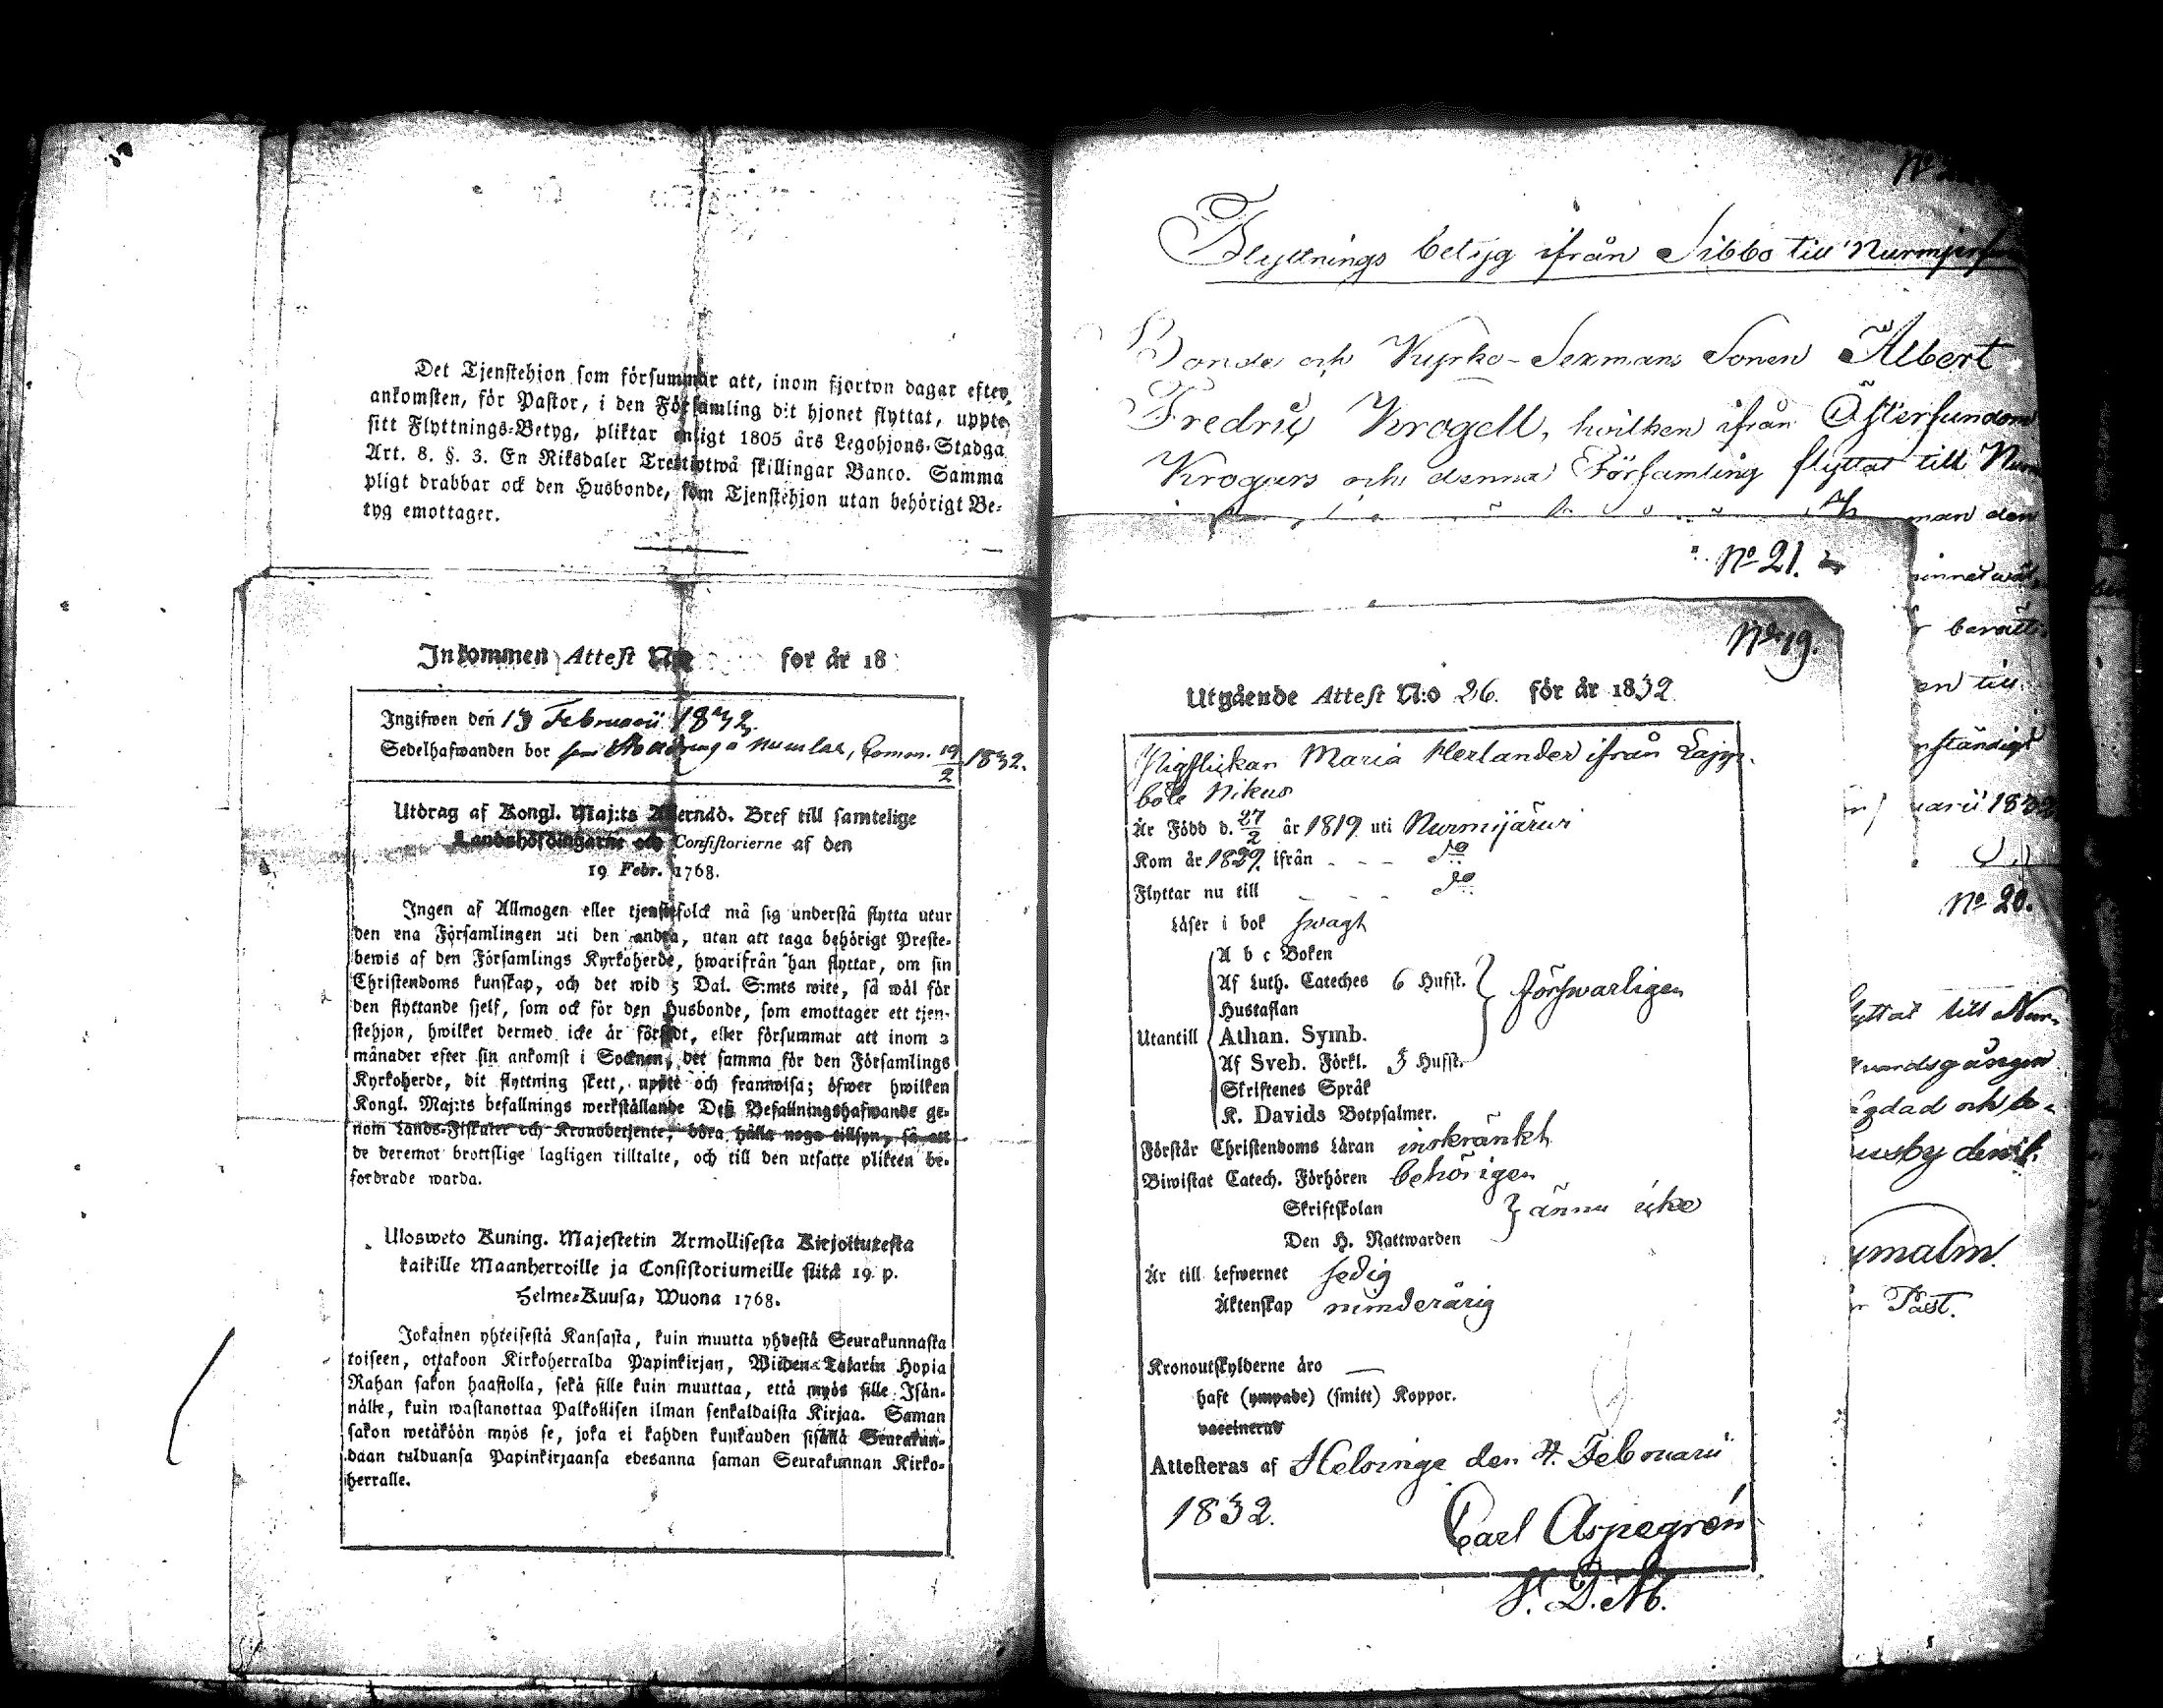 Det Tjenstehjon som försummar att, inom fjorton dagar efter
ankomsten, för Pastor, i den Församling dit hjonet flyttat, uppte
sitt Flyttnings-Betyg, pliktar enligt 1805 års Legohjons-Stadga
Art. 8. §. 3. En Riksdaler Trettiotwå skillingar Banco. Samma
pligt drabbar ock den Husbonde, som Tjenstehjon utan behörigt Be-
tyg emottager.
Inkommen Attest N:o for år 18
Ingifwen den 13 Februarii 1832.
Sedelhafwanden bor
19/2 1832.
Utdrag af Kongl. Maj:ts Allernåd. Bref till samtelige
Landshöfdingarne och Consistorierne af den
19 Febr. 1768.
Ingen af Allmogen eller tjenstefolck må sig understå flytta utur
den ena Församlingen uti den andra, utan att taga behörigt Preste-
bewis af den Församlings Kyrkoherde, hwarifrån han flyttar, om sin
Christendoms kunskap, och det wid 5 Dal. S:mts wite, så wäl för
den flyttande sjelf, som ock för den Husbonde, som emottager ett tjen-
stehjon, hwilket dermed icke är försedt, eller försummar att inom 2
månader efter sin ankomst i Socknen, det samma för den Församlings
Kyrkoherde, dit flyttning skett, uppte och framwisa; öfwer hwilken
Kongl. Maj:ts befallnings werkställande Deß Befallningshafwande ge-
nom Lands-Fiskaler och Kronobetjente, böra hålla noga tillsyn, så att
de deremot brottslige lagligen tilltalte, och till den utsatte plikten be-
fordrade warda.
Ulosweto Kuning. Majestetin Armollisesta Kirjoituxesta
kaikille Maanherroille ja Consistoriumeille siitä 19. p.
Helme-Kuusa, Wuona 1768.
Jokainen yhteisestä Kansasta, kuin muutta yhdestä Seurakunnasta
toiseen, ottakoon Kirkoherralda Papinkirjan, Wiiden Talarin Hopia
Rahan sakon haastolla, sekä sille kuin muuttaa, että myös sille Isän-
nälle, kuin wastanottaa Palkollisen ilman senkaldaista Kirjaa. Saman
sakon wetäköön myös se, joka ei kahden kuukauden sisällä Seurakun-
daan tulduansa Papinkirjaansa edesanna saman Seurakunnan Kirko-
herralle.
Flyttnings betyg ifrån Sibbo till Nurmijerfwi
Bonde och Kyrko-Sexmans Sonen Albert
Fredric Krogell, hvilken ifrån Östersundom
Krogars och denna Församling flyttat till Nurm
man den
No 21.
beratti
en till
nständigt
uarii 1832
No 20.
lyttat till Nur-
wandsgången
gdad och be-
usby den
ymalm.
Past.
No 19.
Utgående Attest N:o 26. för år 1832
Pigflickan Maria Herlander ifrån Lapp-
böle Nikus
Är Född d. 27/2 år 1819 uti Nurmijärwi
Kom år 1829. ifrån - - - do
Flyttar nu till - - - do
Läser i bok swagt
A b c Boken
Af Luth. Cateches 6 Hufst. } försvarligen
Hustaflan
Utantill { Athan. Symb.
Af Sveb. Förkl. 3 Hufst.
Skriftenes Språk
K. Davids Botpsalmer.
Förstår Christendoms Läran inskränkt
Biwistat Catech. Förhören behörigen
Skriftskolan } ännu icke
Den H. Nattwarden
Är till Lefwernet sedig
Äktenskap minderårig
Kronoutskylderne äro —
haft (ympade) (smitt) Koppor.
vaccinerad
Attesteras af Helsinge den 4. Februarii
1832.
Carl Aspegrén
V. D. M.